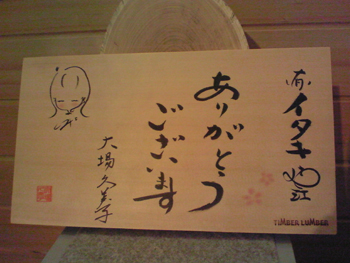 有
イタキ
ありがとう
ございます
大場久美子
TIMBER LUMBER